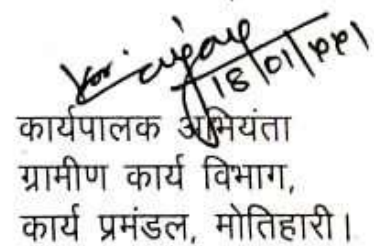 18/01/
कार्यपालक अभियंता
ग्रामीण कार्य विभाग,
कार्य प्रमंडल, मोतिहारी।